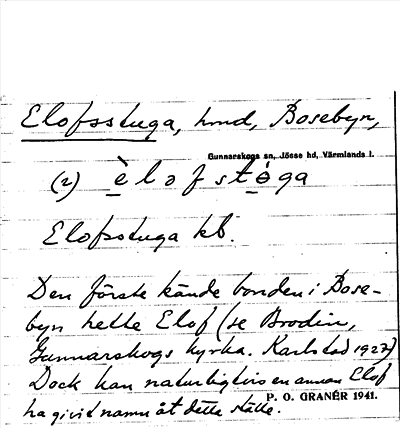 Elofsstuga, hmd, Bosebyn,
Gunnarskogs sn, Jösse hd, Värmlands l.
(2) è l ɔ f s t ö g a
Elofsstuga kb.
Den förste kände bonden i Bose-
byn hette Elof (se Brodin,
Gunnarskogs kyrka. Karlstad 1927)
Dock kan naturligtvis en annan Elof
ha givit namn åt detta ställe.
P. O. GRANÉR 1941.